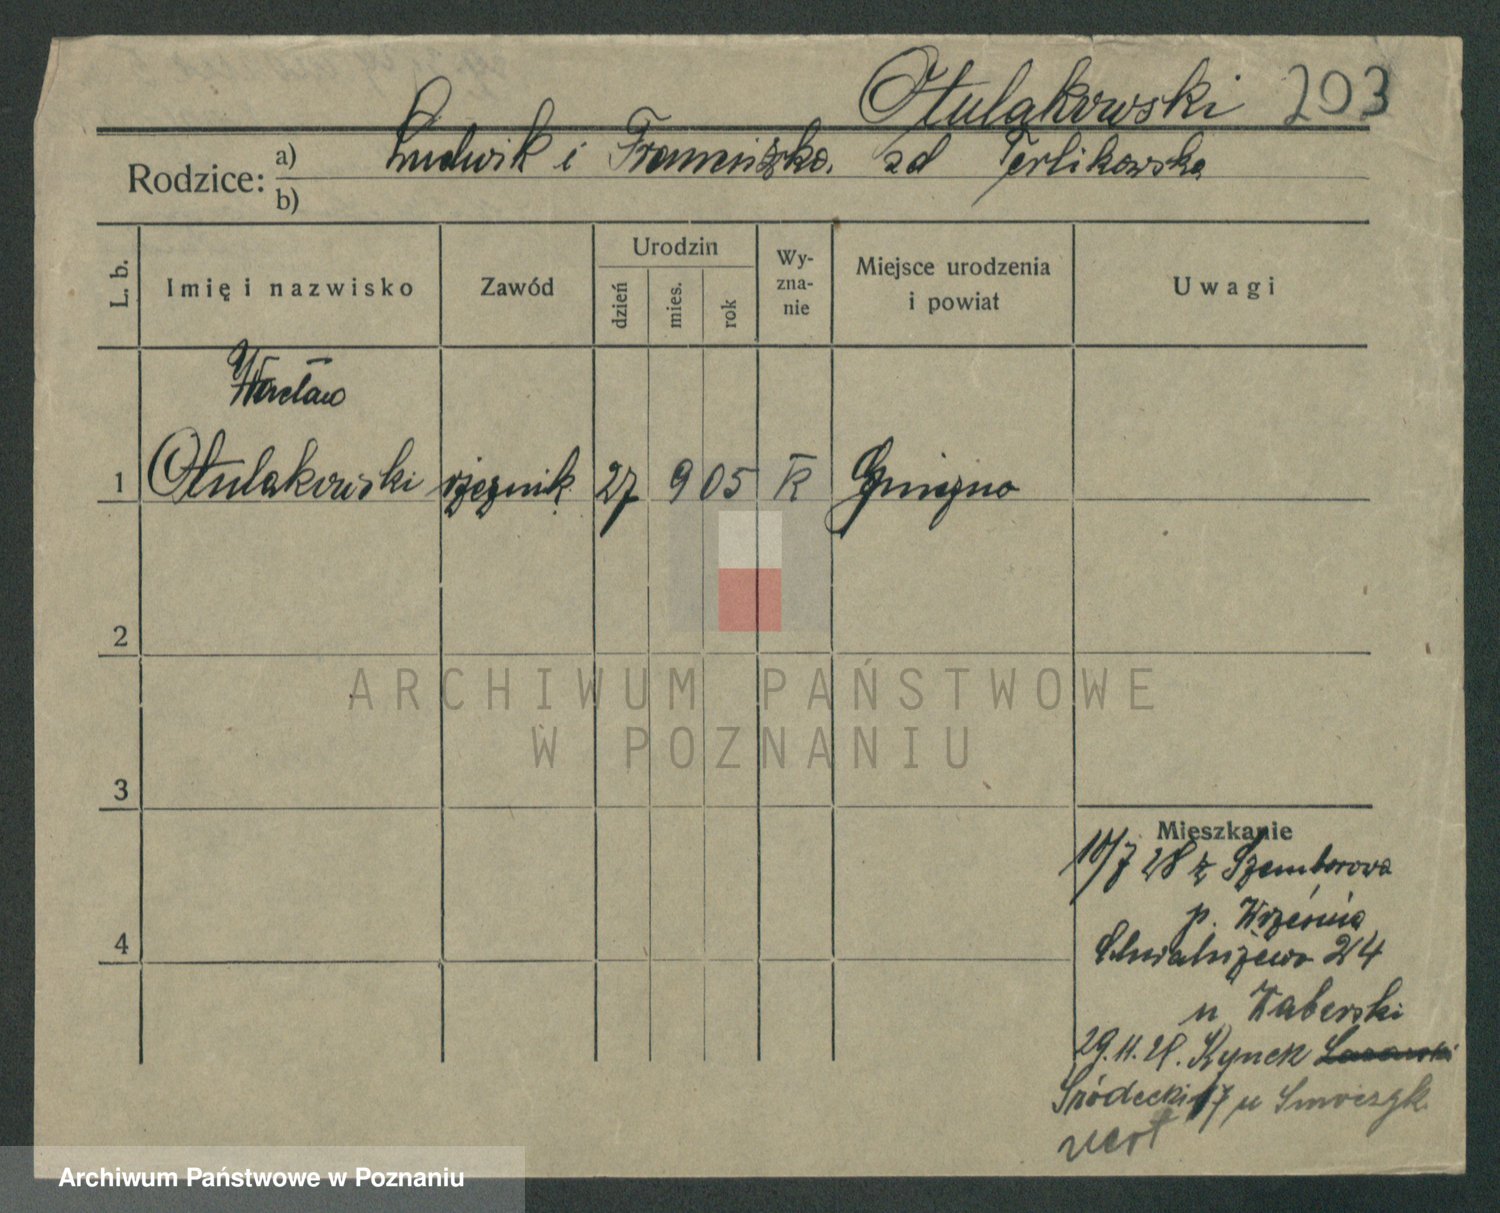 Otulakowski 203
Rodzice: a) Ludwik i Franciszka. zd Terlikowska
b)
L. b. Imię i nazwisko Zawód Urodzin dzień mies. rok Wy-zna-nie Miejsce urodzenia i powiat Uwagi
Wacław
1 Otulakowski rzeźnik 27 9 05 k Gniezno
2
ARCHIWUM PAŃSTWOWE
W POZNANIU
3
Mieszkanie
10/7 28 z Szemborowa
p. Września
4 Chwaliszewo 24
u Waberski
29.11.28. Rynek
Śródecki 17 u
Archiwum Państwowe w Poznaniu